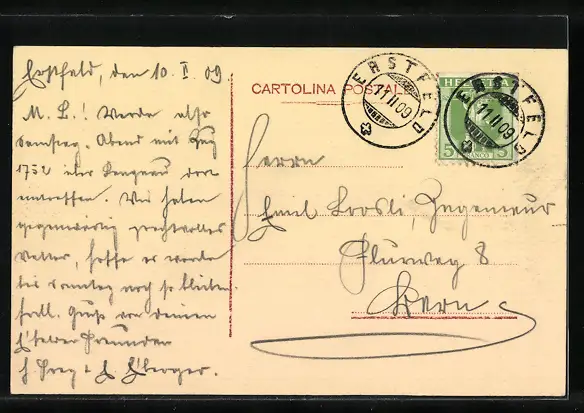 Erstfeld, den 10. II. 09
M. L.! Werde also
Samstag Abend mit Zug
1752 über Langnau dort
eintreffen. Wir haben
gegenwärtig prachtvolles
Wetter, hoffe es werde
bis Sonntag noch so bleiben
Gruß von deinen
Freunden
CARTOLINA POSTALE
ERSTFELD
11.II.09
HELVETIA
5 FRANCO 5
ERSTFELD
11.II.09
Herrn
Emil Loosli, Ingenieur
Flurweg 8
Bern